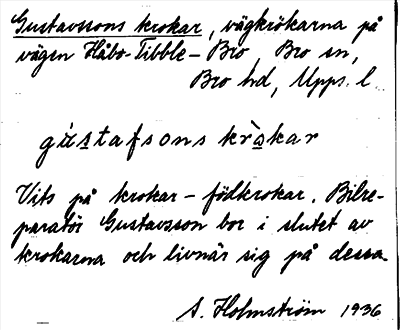 Gustavssons krokar, vägkrökarna på
vägen Håbo-Tibble - Bro, Bro sn,
Bro hd, Upps. l.
gùstafsons kràkar
Vits på krokar - födkrokar. Bilre-
paratör Gustavsson bor i slutet av
krokarna och livnär sig på dessa.
S. Holmström 1936